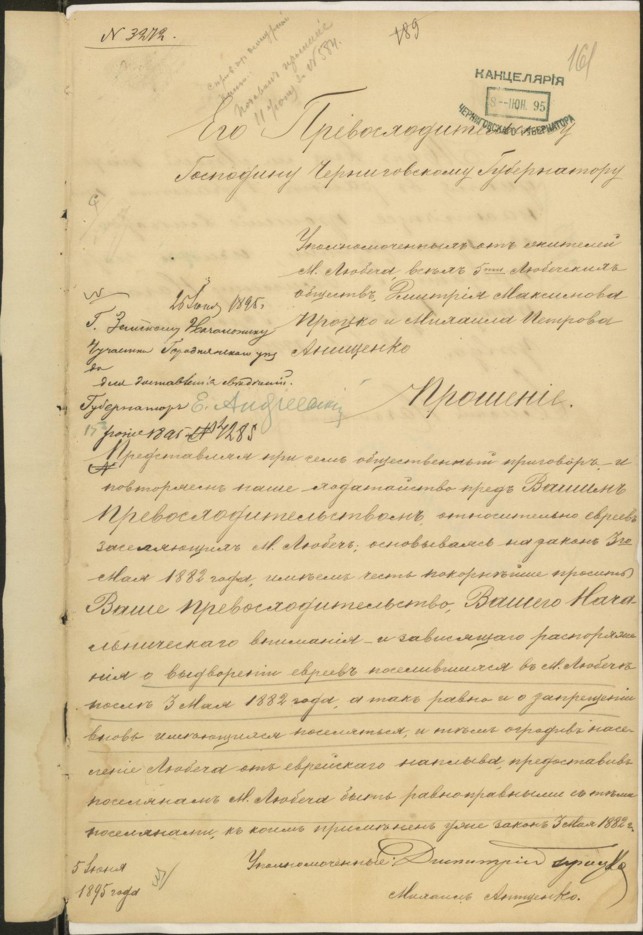 N 3272.
189
161
КАНЦЕЛЯРІЯ
8--ІЮН. 95
ЧЕРНИГОВСКАГО ГУБЕРНАТОРА
11
N 584.
Его Превосходительству
Господину Черниговскому Губернатору
Уполномоченныхъ отъ жителей
М. Любеча, всѣхъ 5ти Любечскихъ
обществъ, Дмитрія Максимова
Процко и Михаила Петрова
Анищенко
Прошеніе.
1895.
Г. Земскому Начальнику
участка Городнянского уѣз
да
для доставленія свѣдѣній.
Губернаторъ Е. Андреевскій
1895 № 4285
Представляя при семъ общественный приговоръ – и
повторяемъ наше ходатайство предъ Вашимъ
Превосходительствомъ, относительно евреевъ
заселяющихъ М. Любечъ, основываясь на законѣ 3го
Мая 1882 года, имѣемъ честь покорнѣйше просить
Ваше Превосходительство, Вашего Нача
льническаго вниманія – и зависящаго распоряже
нія о выдвореніи евреевъ поселившихся въ М. Любечѣ
послѣ 3 Мая 1882 года, а такъ равно и о запрещеніи
вновь имѣющимся поселяться, и тѣмъ оградивъ насе
леніе Любеча отъ еврейскаго наплыва, предоставивъ
поселянамъ М. Любеча быть равноправными съ тѣми
поселянами, къ коимъ примѣненъ уже законъ 3 Мая 1882 г.
5 Июня
1895 года
Уполномоченные: Дмитрій Процко
Михаилъ Анищенко.